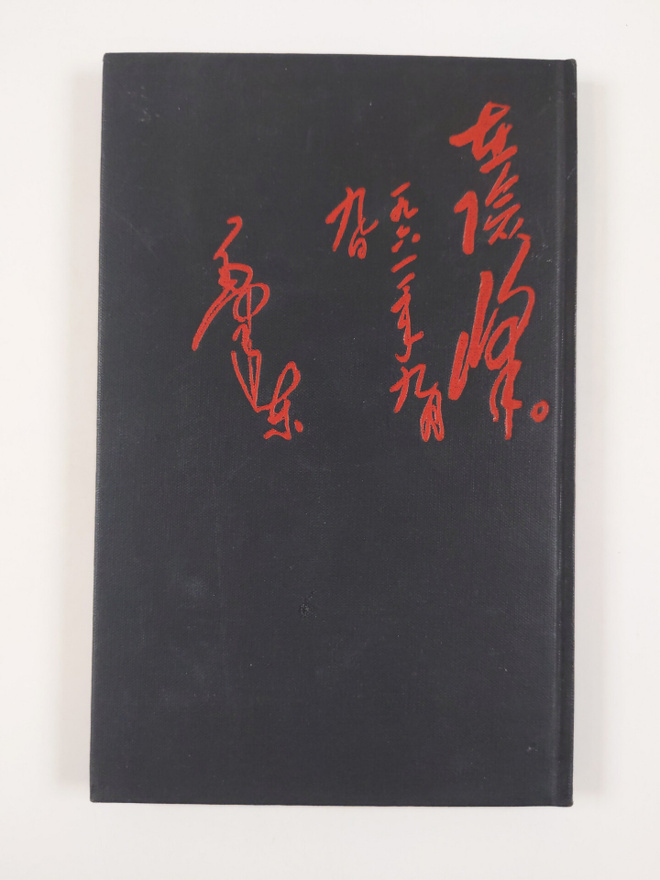 在险峰。
一九六一年九月
九日
毛泽东